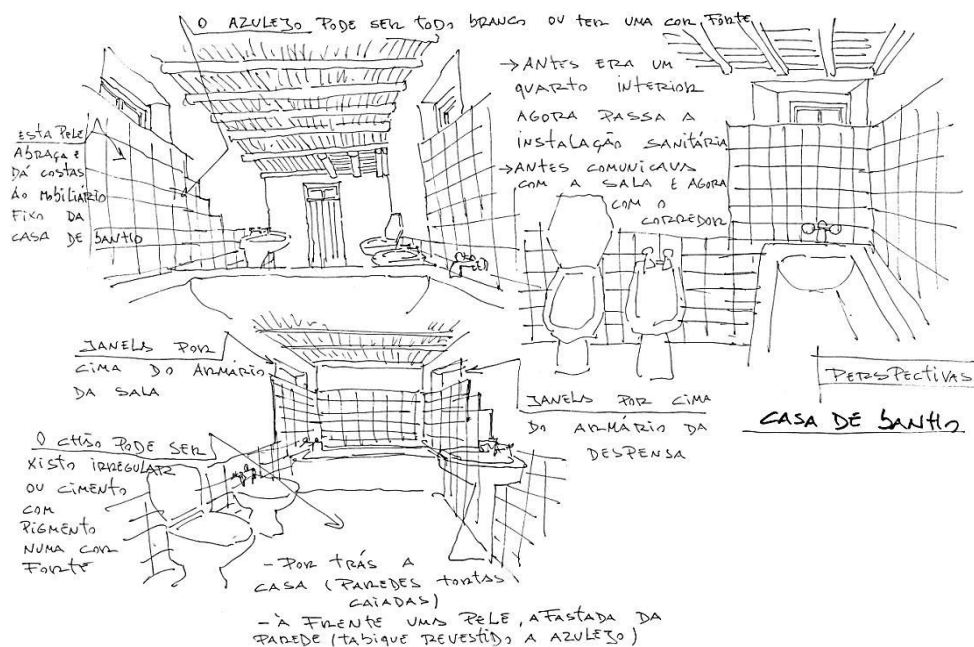 O AZULEJO PODE SER TODO BRANCO OU TER UMA COR FORTE
ESTA PELE
ABRAÇA E
DÁ COSTAS
AO MOBILIÁRIO
FIXO DA
CASA DE BANHO
→ ANTES ERA UM
QUARTO INTERIOR
AGORA PASSA A
INSTALAÇÃO SANITÁRIA
→ ANTES COMUNICAVA
COM A SALA E AGORA
COM O
CORREDOR
JANELA POR
CIMA DO ARMÁRIO
DA SALA
JANELA POR CIMA
DO ARMÁRIO DA
DESPENSA
PERSPECTIVAS
CASA DE BANHO
O CHÃO PODE SER
XISTO IRREGULAR
OU CIMENTO
COM
PIGMENTO
NUMA COR
FORTE
- POR TRÁS A
CASA (PAREDES TORTAS
CAIADAS)
- À FRENTE UMA PELE, AFASTADA DA
PAREDE (TABIQUE REVESTIDO A AZULEJO)